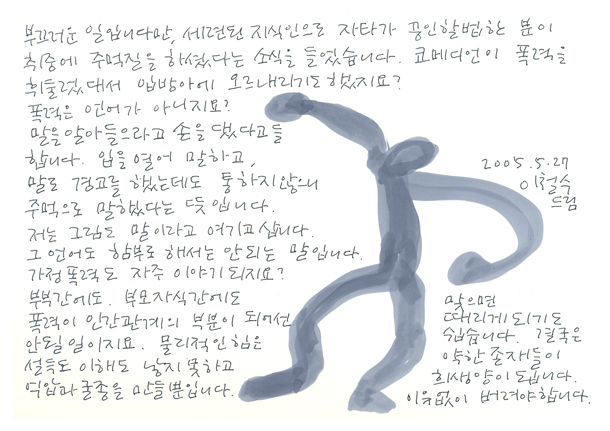 부끄러운 일입니다만, 세련된 지식인으로 자타가 공인할법한 분이
취중에 주먹질을 하셨다는 소식을 들었습니다. 코메디언이 폭력을
휘둘렀대서 입방아에 오르내리기도 했지요?
폭력은 언어가 아니지요?
말을 알아들으라고 손을 댔다고들
합니다. 입을 열어 말하고,
말로 경고를 했는데도 통하지않으니
주먹으로 말했다는 뜻입니다.
저는 그림도 말이라고 여기고 삽니다.
그 언어도 함부로 해서는 안되는 말입니다.
가정폭력도 자주 이야기 되지요?
부부간에도. 부모자식간에도
폭력이 인간관계의 부분이 되어선
안될 일이지요. 물리적인 힘은
설득도 이해도 낳지 못하고
억압과 굴종을 만들 뿐입니다.
맞으면
때리게 되기도
쉽습니다. 결국은
약한 존재들이
희생양이 됩니다.
이유없이 버려야합니다.
2005.5.27
이철수
드림